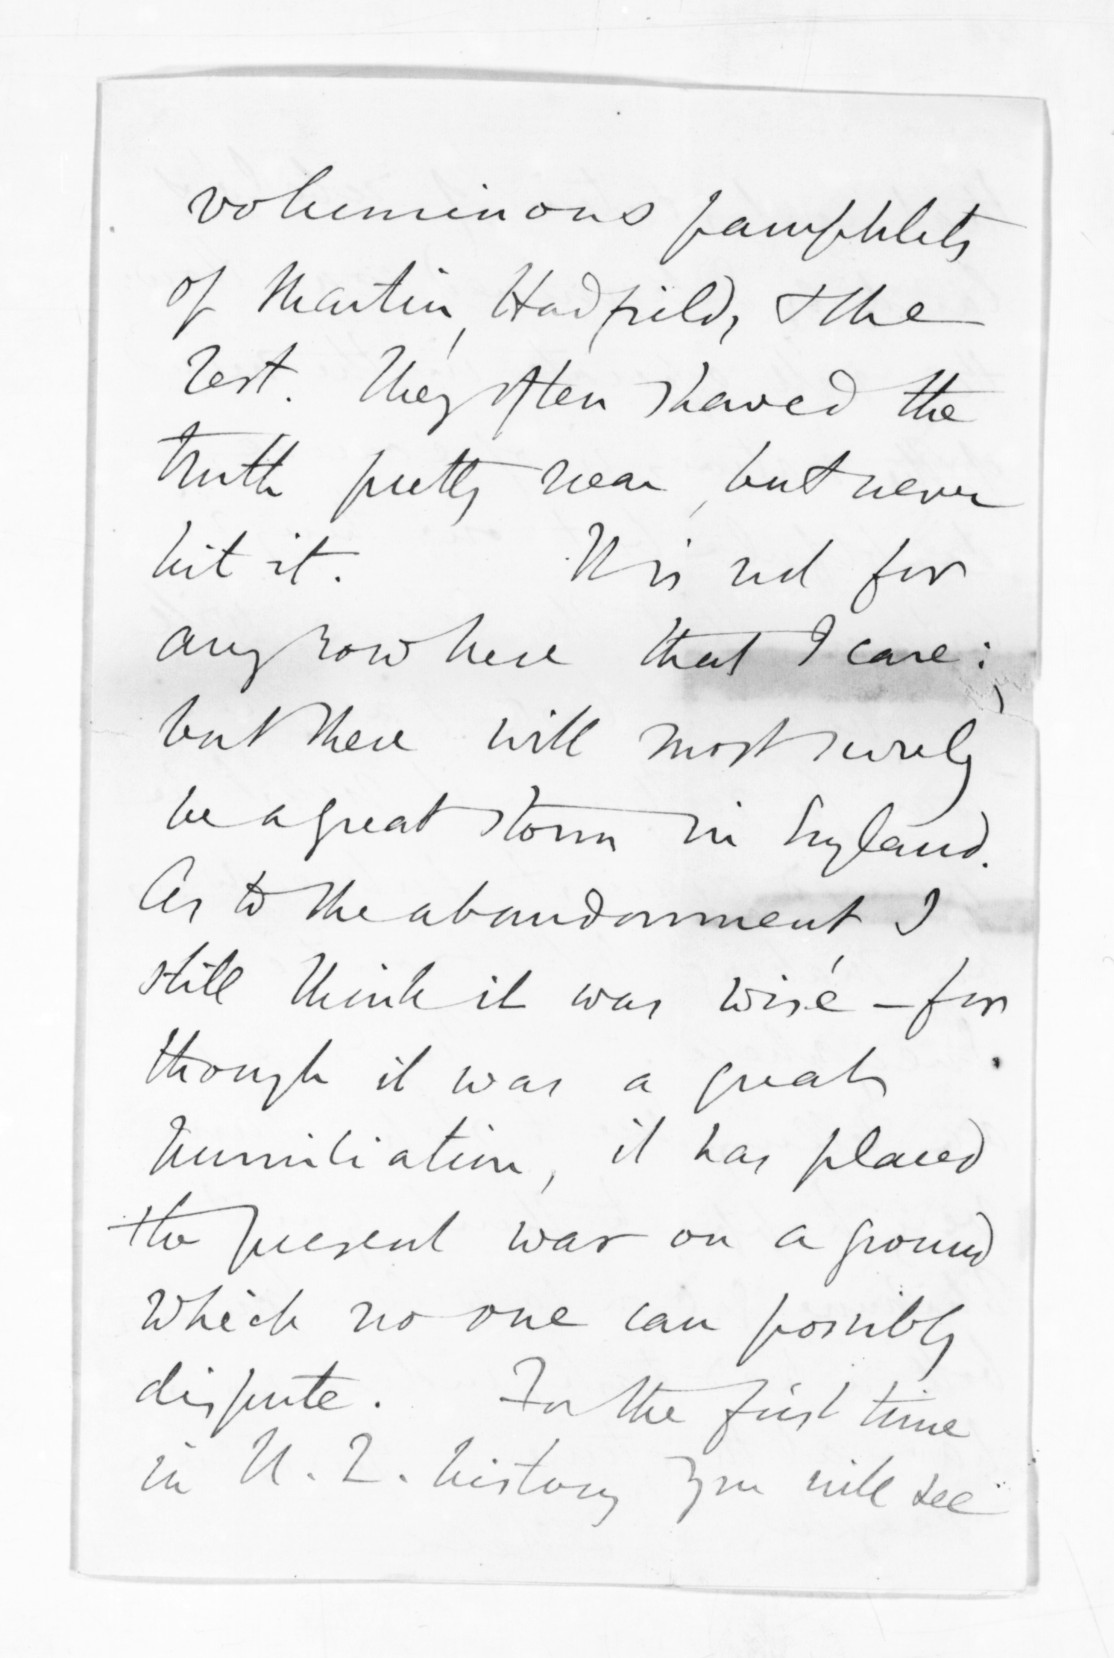 voluminous pamphlets
of Martin, Hadfield, & the
rest. They often shaved the
truth pretty near, but never
hit it. It is not for
any row here that I care;
but there will most surely
be a great storm in England.
As to the abandonment I
still think it was wise – for
though it was a great
humiliation, it has placed
the present war on a ground
which no one can possibly
dispute. For the first time
in N. Z. history you will see